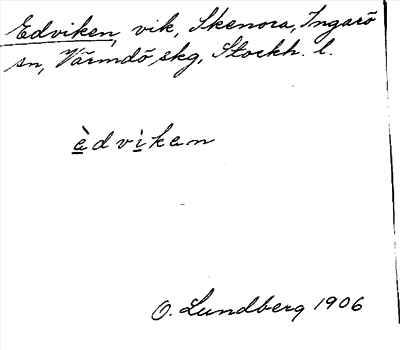 Edviken, vik, Skenora, Ingarö
sn, Värmdö skg, Stockh. l.
ɛ̀dvìkan
O. Lundberg 1906